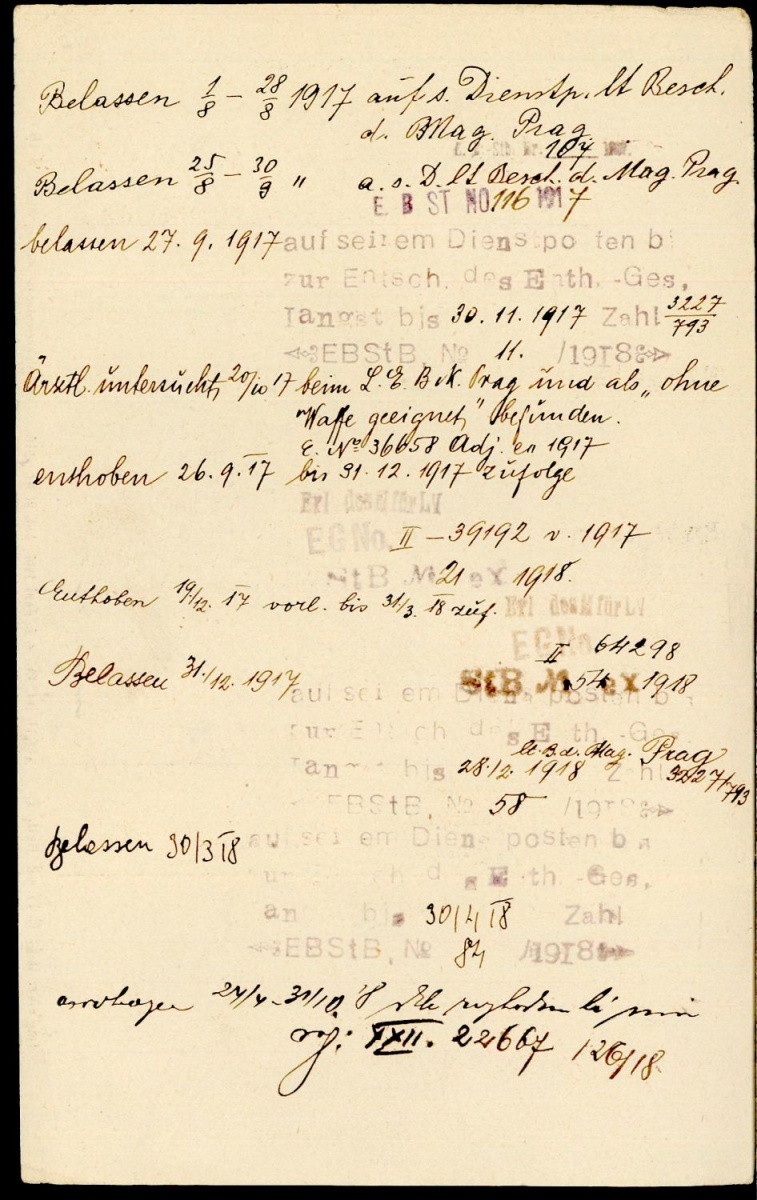 Belassen 1/8 – 28/8 1917 auf s. Dienstp. lt Besch.
d. Mag. Prag
107
Belassen 25/8 – 30/9 " a. s. D. lt Besch. d. Mag. Prag.
E B ST NO 116 1917
belassen 27. 9. 1917 auf seinem Dienstposten bis
zur Entsch. des Enth.-Ges,
längst bis 30. 11. 1917 Zahl 3227/793
EBStB, No 11. /1918
Ärztl. untersucht 20/10 17 beim L. E. B. K. Prag und als „ohne
Waffe geeignet" befunden.
E. No 36658 Adj. ex 1917
enthoben 26. 9. 17 bis 31. 12. 1917 zufolge
Erl des M für LV
EGNo. II – 39192 v. 1917
StB No 21 ex 1918.
Enthoben 19/12. 17 vorl. bis 31/3. 18 zuf. Erl des M für LV
EGNo. II 64298
StB No 54 ex 1918
Belassen 31./12. 1917 auf seinem Dienstposten bis
zur Entsch. des Enth.-Ges,
lt. B. d. Mag. Prag
längst bis 28./2. 1918 Zahl 3227/793
EBStB, No 58 /1918
Belassen 30/3 18 auf seinem Dienstposten bis
zur Entsch. des Enth.-Ges,
längst bis 30/4 18 Zahl
EBStB, No 84 /1918
31/10 18
XXII. 22667 126/18